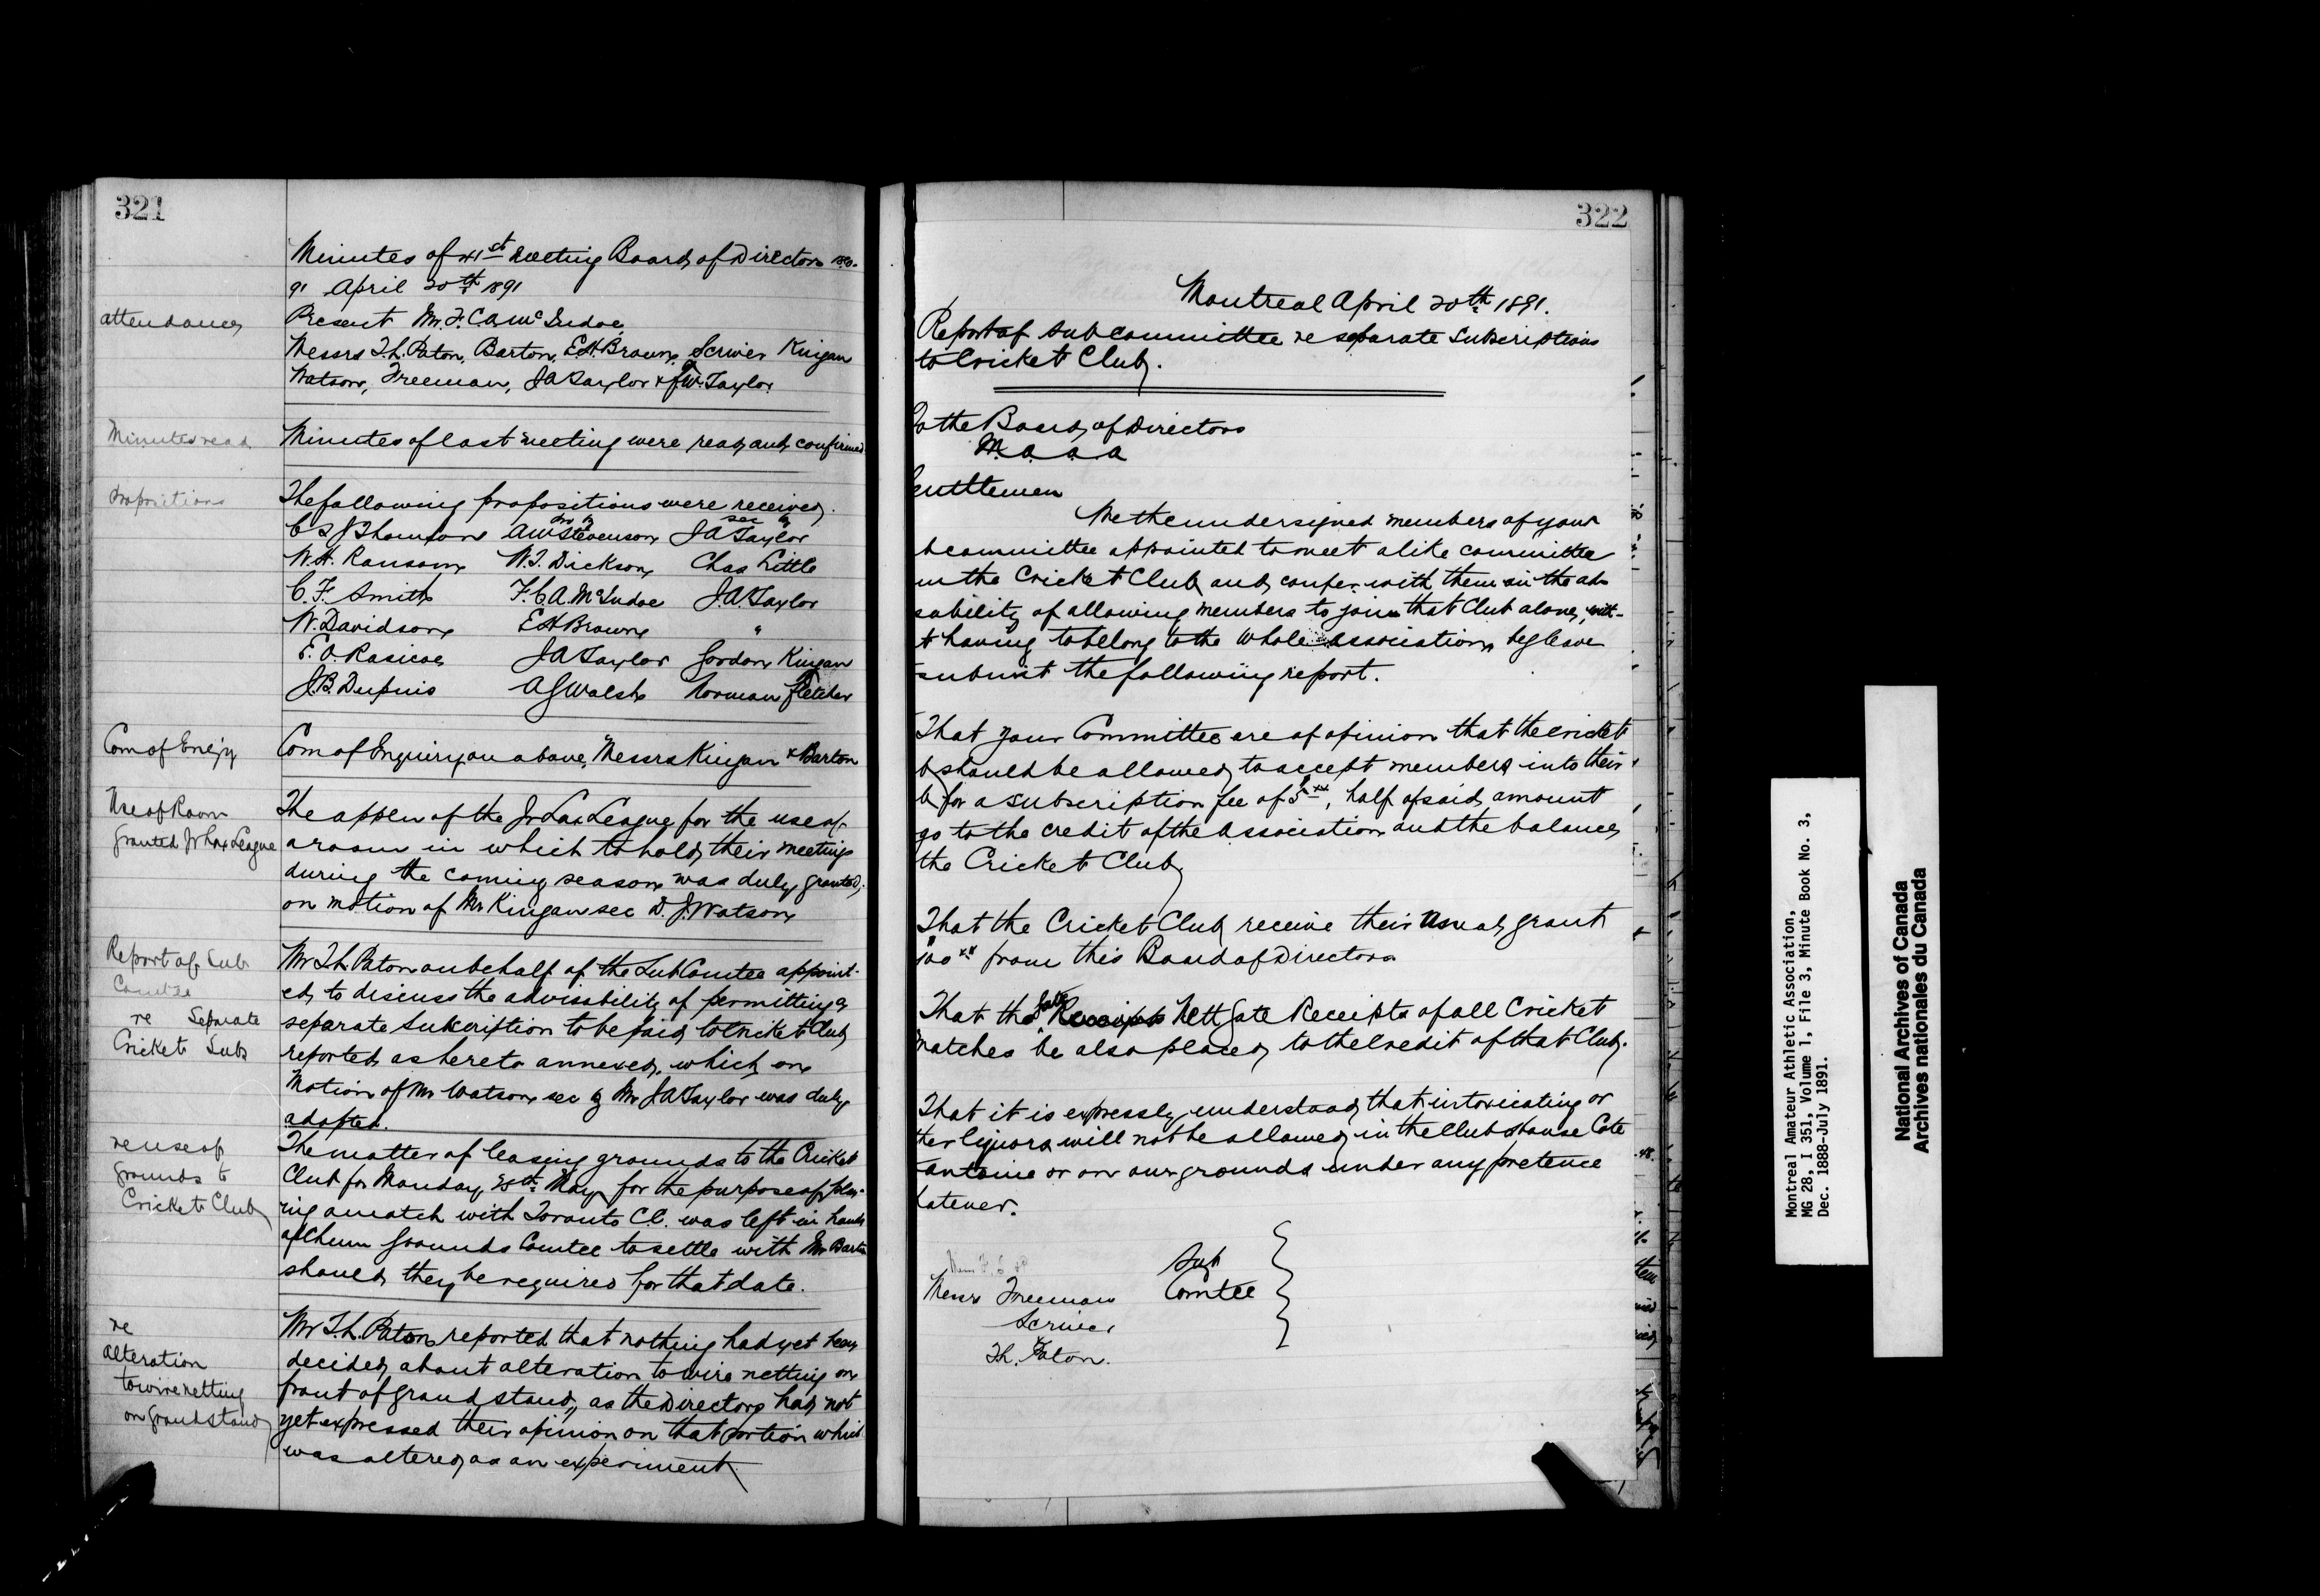 321
Minutes of 41st Meeting Board of Directors 1890-
91 April 20th 1891
attendance
Present Mr. F. C. A. McIndoe
Messrs T. L. Paton, Barton, E. H. Brown, Scriver Kingan
Watson, Freeman, J A Taylor & J. W. Taylor
Minutes read
Minutes of last meeting were read and confirmed
Propositions
The following propositions were received.
pro by sec by
C S J Thomson A W Stevenson J A Taylor
W. H. Ransom W. J. Dickson Chas Little
C. F. Smith F. C. A. McIndoe J. A. Taylor
W. Davidson E H Brown "
E. O. Rasicoe J A Taylor Gordon Kingan
J. B. Dupuis A G Walsh Norman Fletcher
Com of Enq'y
Com of Enquiry on above, Messrs Kingan & Barton
Use of Room
granted Jr Lax League
The appln of the Jr Lax League for the use of
a room in which to hold their meetings
during the coming season was duly granted,
on motion of Mr Kingan sec D. J. Watson
Report of Sub
Comtee
re Separate
Cricket Subs
Mr T L Paton on behalf of the Sub Comtee appoint-
ed to discuss the advisability of permitting a
separate subscription to be paid to Cricket Club
reported as hereto annexed, which on
Motion of Mr Watson sec by Mr J A Taylor was duly
adopted.
re use of
grounds to
Cricket Club
The matter of leasing grounds to the Cricket
Club for Monday, 25th May for the purpose of play-
ing a match with Toronto C.C. was left in hands
of Chum Grounds Comtee to settle with Mr Barton
should they be required for that date.
re
alteration
to wire netting
on grandstand
Mr T. L. Paton reported that nothing had yet been
decided about alteration to wire netting on
front of grand stand, as the Directors had not
yet expressed their opinion on that portion which
was altered as an experiment.
322
Montreal April 20th 1891.
Report of Sub committee re separate Subscriptions
to Cricket Club.
To the Board of Directors
M. a. a. a
Gentlemen
We the undersigned members of your
bcommittee appointed to meet a like committee
m the Cricket Club and confer with them on the ad-
sability of allowing members to join that Club alone, with-
t having to belong to the whole association, beg leave
submit the following report.
That your Committee are of opinion that the cricket
b should be allowed to accept members into their
b for a subscription fee of $5.xx, half of said amount
go to the credit of the Association and the balance
the Cricket Club
That the Cricket Club receive their usual grant
$100 xx from this Board of Directors
That the Gate Receipts Nett Gate Receipts of all Cricket
matches be also placed to the Credit of that Club.
That it is expressly understood, that intoxicating or
ther liquors will not be allowed in the Club House Cote
antoine or on our grounds under any pretence
hatever.
Messrs Freeman
Scriver
T. L. Paton.
Sub
Comtee
Montreal Amateur Athletic Association,
MG 28, I 351, Volume 1, File 3, Minute Book No. 3,
Dec. 1888-July 1891.
National Archives of Canada
Archives nationales du Canada